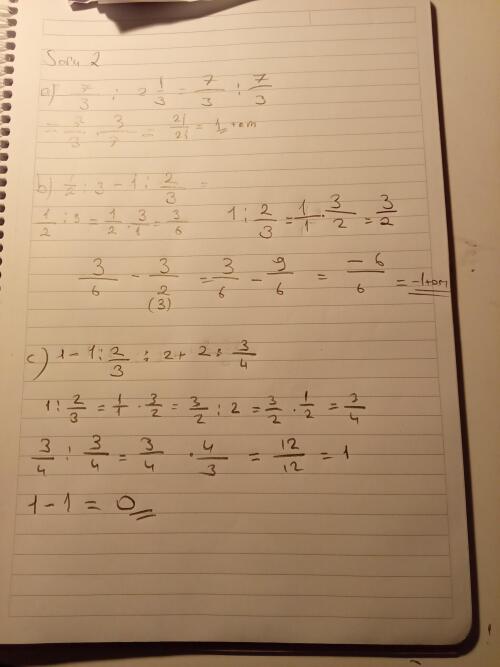 Soru 2
a) 7/3 : 2 1/3 = 7/3 : 7/3
= 7/3 · 3/7 = 21/21 = 1 tam
b) 1/2 : 3 - 1 : 2/3 =
1/2 : 3 = 1/2 · 3/1 = 3/6 1 : 2/3 = 1/1 · 3/2 = 3/2
3/6 - 3/2 (3) = 3/6 - 9/6 = -6/6 = -1 tam
c) 1 - 1 : 2/3 : 2 + 2 : 3/4
1 : 2/3 = 1/1 · 3/2 = 3/2 : 2 = 3/2 · 1/2 = 3/4
3/4 : 3/4 = 3/4 · 4/3 = 12/12 = 1
1 - 1 = 0